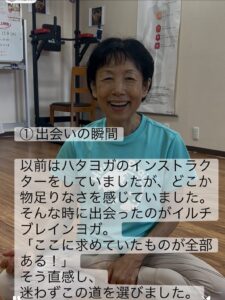 ① 出会いの瞬間
以前はハタヨガのインストラク
ターをしていましたが、どこか
物足りなさを感じていました。
そんな時に出会ったのがイルチ
ブレインヨガ。
「ここに求めていたものが全部
ある！」
そう直感し、
迷わずこの道を選びました。